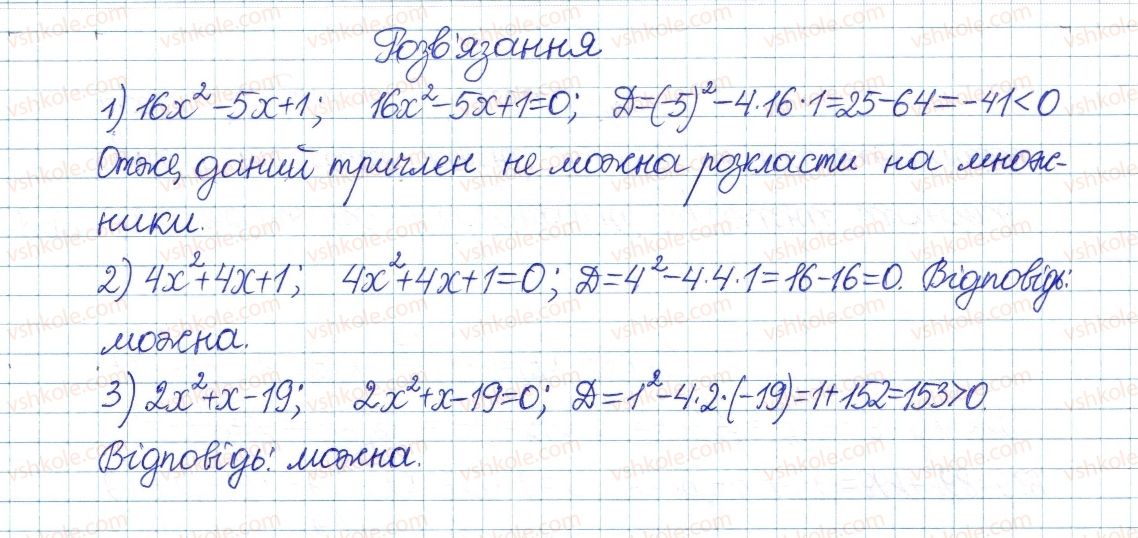 Розв'язання
1) 16x²-5x+1; 16x²-5x+1=0; Д=(-5)²-4·16·1=25-64=-41<0
Отже, даний тричлен не можна розкласти на множ-
ники.
2) 4x²+4x+1; 4x²+4x+1=0; Д=4²-4·4·1=16-16=0. Відповідь:
можна.
3) 2x²+x-19; 2x²+x-19=0; Д=1²-4·2·(-19)=1+152=153>0.
Відповідь: можна.